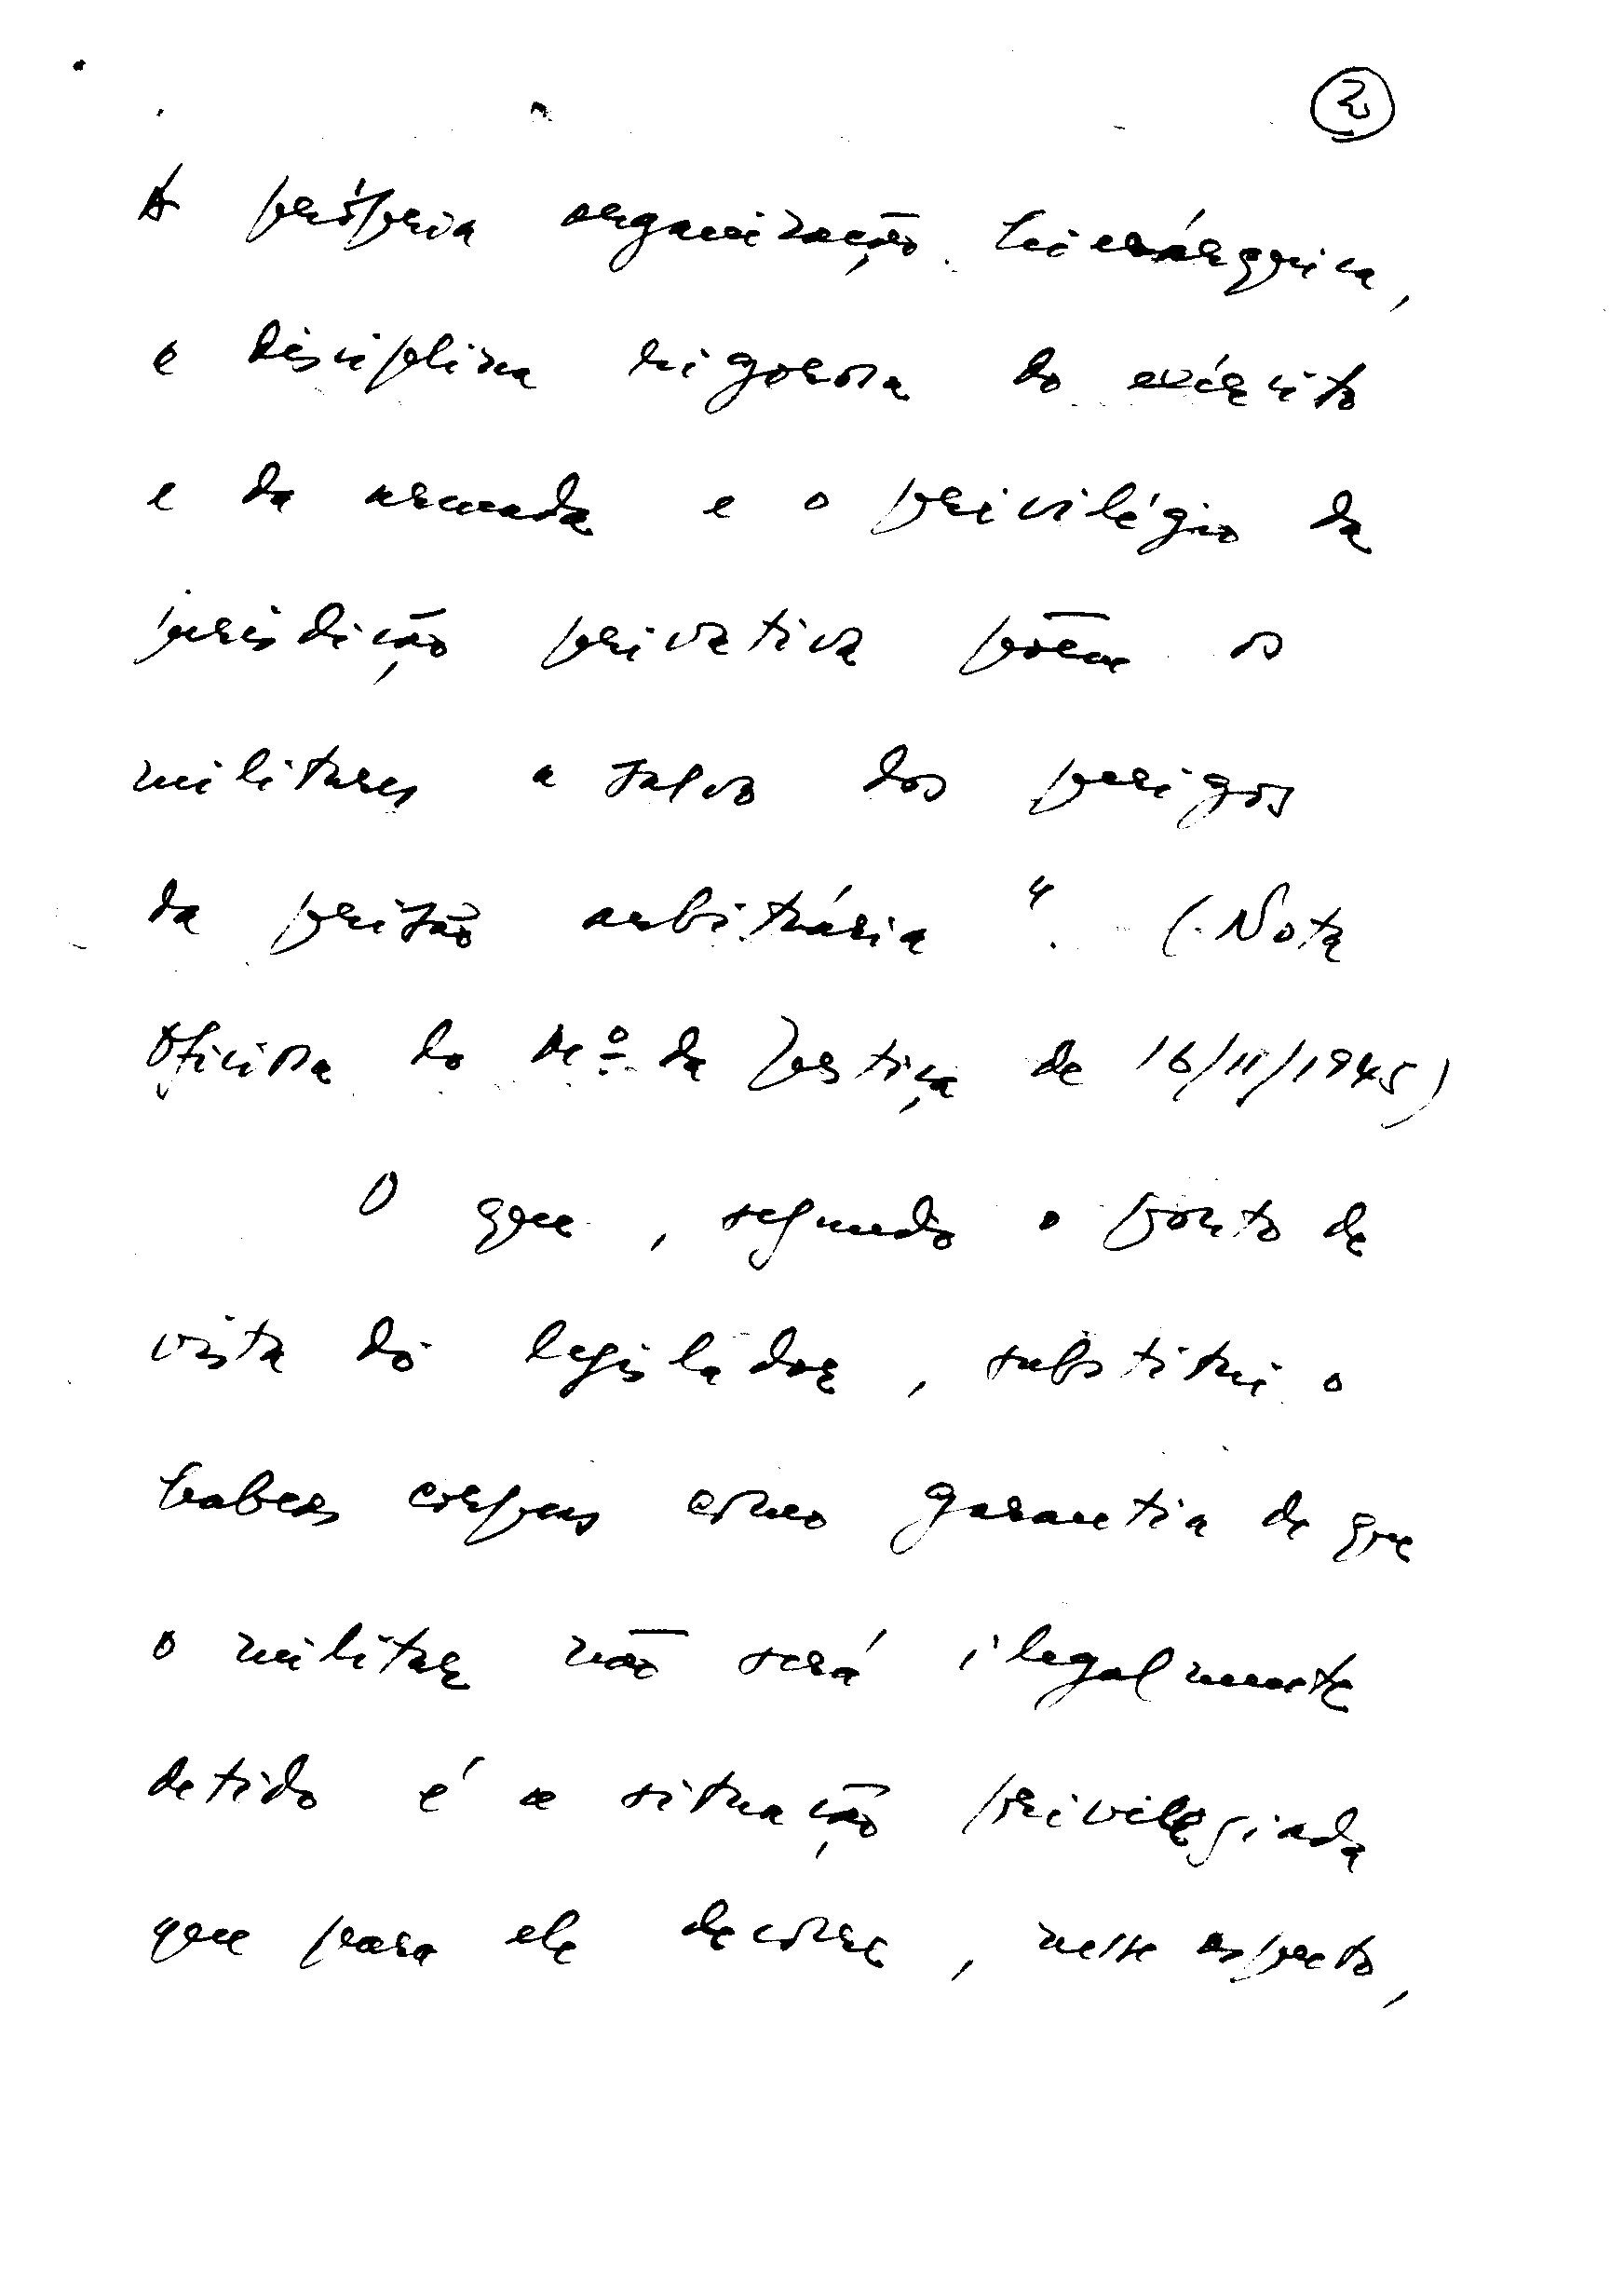 2
A própria organização hierárquica,
a disciplina rigorosa do exército
e da armada e o privilégio da
jurisdição privativa põem os
militares a salvo dos perigos
da prisão arbitrária". (Nota
Oficiosa do Mº da Justiça de 16/11/1945)
O que, segundo o ponto de
vista do legislador, substitui o
habeas corpus como garantia de que
o militar não será ilegalmente
detido é a situação privilegiada
que para ele decorre, nesse aspecto,